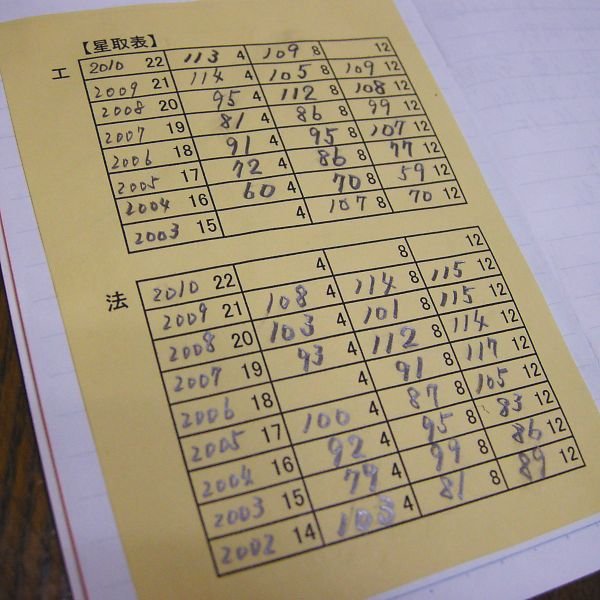 【星取表】
工 2010 22 113 4 109 8 12
2009 21 114 4 105 8 109 12
2008 20 95 4 112 8 108 12
2007 19 81 4 86 8 99 12
2006 18 91 4 95 8 107 12
2005 17 72 4 86 8 77 12
2004 16 60 4 70 8 59 12
2003 15 4 107 8 70 12
法 2010 22 4 8 12
2009 21 108 4 114 8 115 12
2008 20 103 4 101 8 115 12
2007 19 93 4 112 8 114 12
2006 18 4 91 8 117 12
2005 17 100 4 87 8 105 12
2004 16 92 4 95 8 83 12
2003 15 79 4 99 8 86 12
2002 14 103 4 81 8 89 12